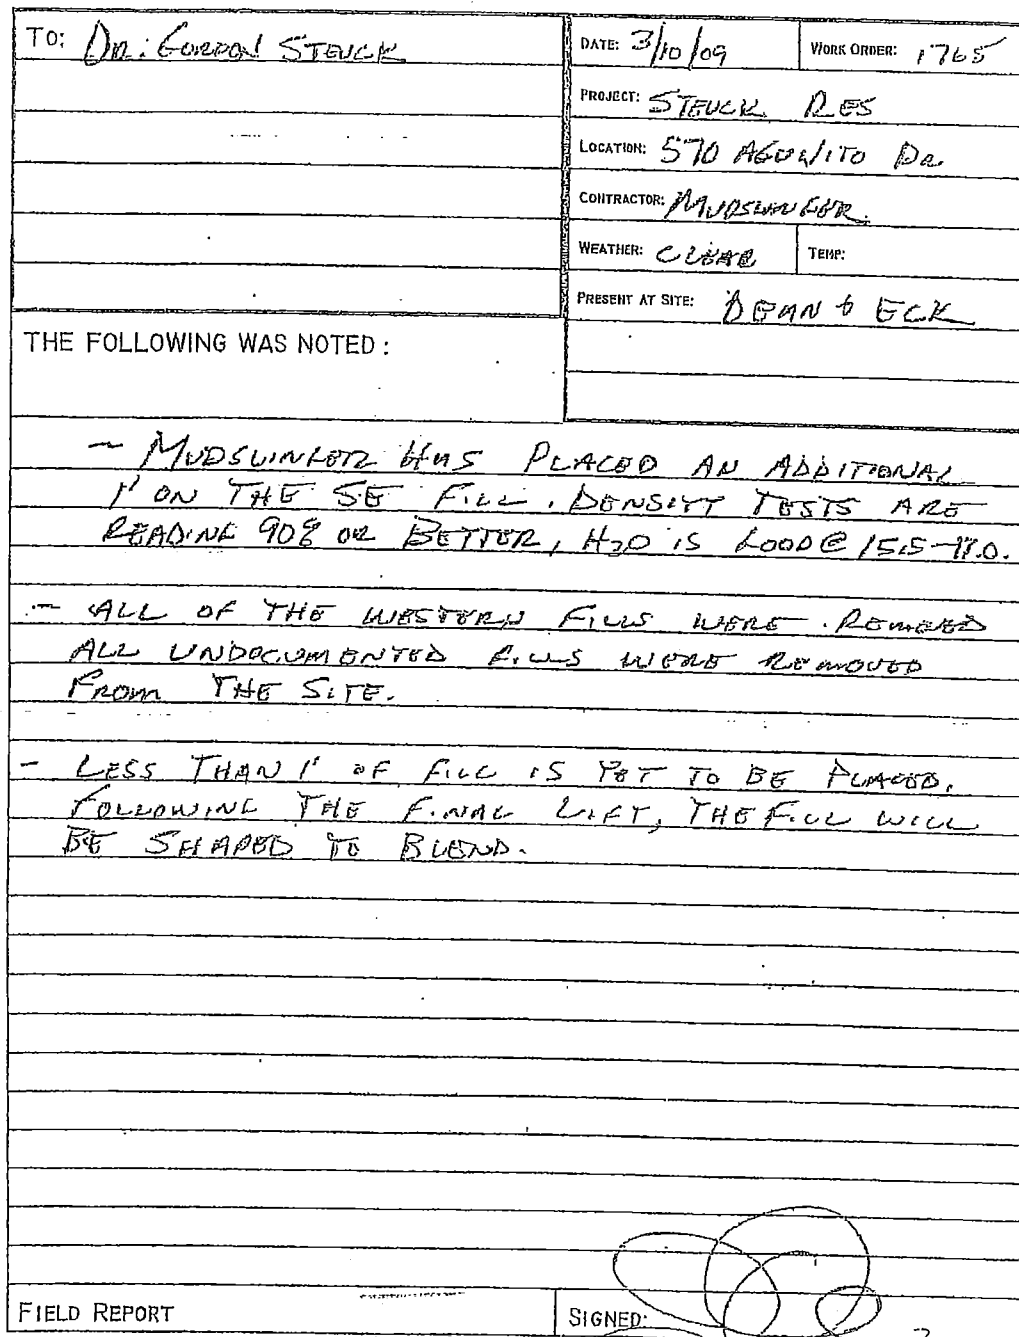 TO: DR. GORDON STEUCK
DATE: 3/10/09
WORK ORDER: 1765
PROJECT: STEUCK RES
LOCATION: 570 AGUAJITO DR.
CONTRACTOR: MUDSLINGER
WEATHER: CLEAR
TEMP:
PRESENT AT SITE: DEAN & ECK
THE FOLLOWING WAS NOTED:
- MUDSLINGER HAS PLACED AN ADDITIONAL
1' ON THE SE FILL. DENSITY TESTS ARE
READING 90% OR BETTER, H2O IS GOOD @ 15.5-17.0.
- ALL OF THE WESTERN FILLS WERE REMOVED
ALL UNDOCUMENTED FILLS WERE REMOVED
FROM THE SITE.
- LESS THAN 1' OF FILL IS YET TO BE PLACED.
FOLLOWING THE FINAL LIFT, THE FILL WILL
BE SHAPED TO BLEND.
FIELD REPORT
SIGNED: